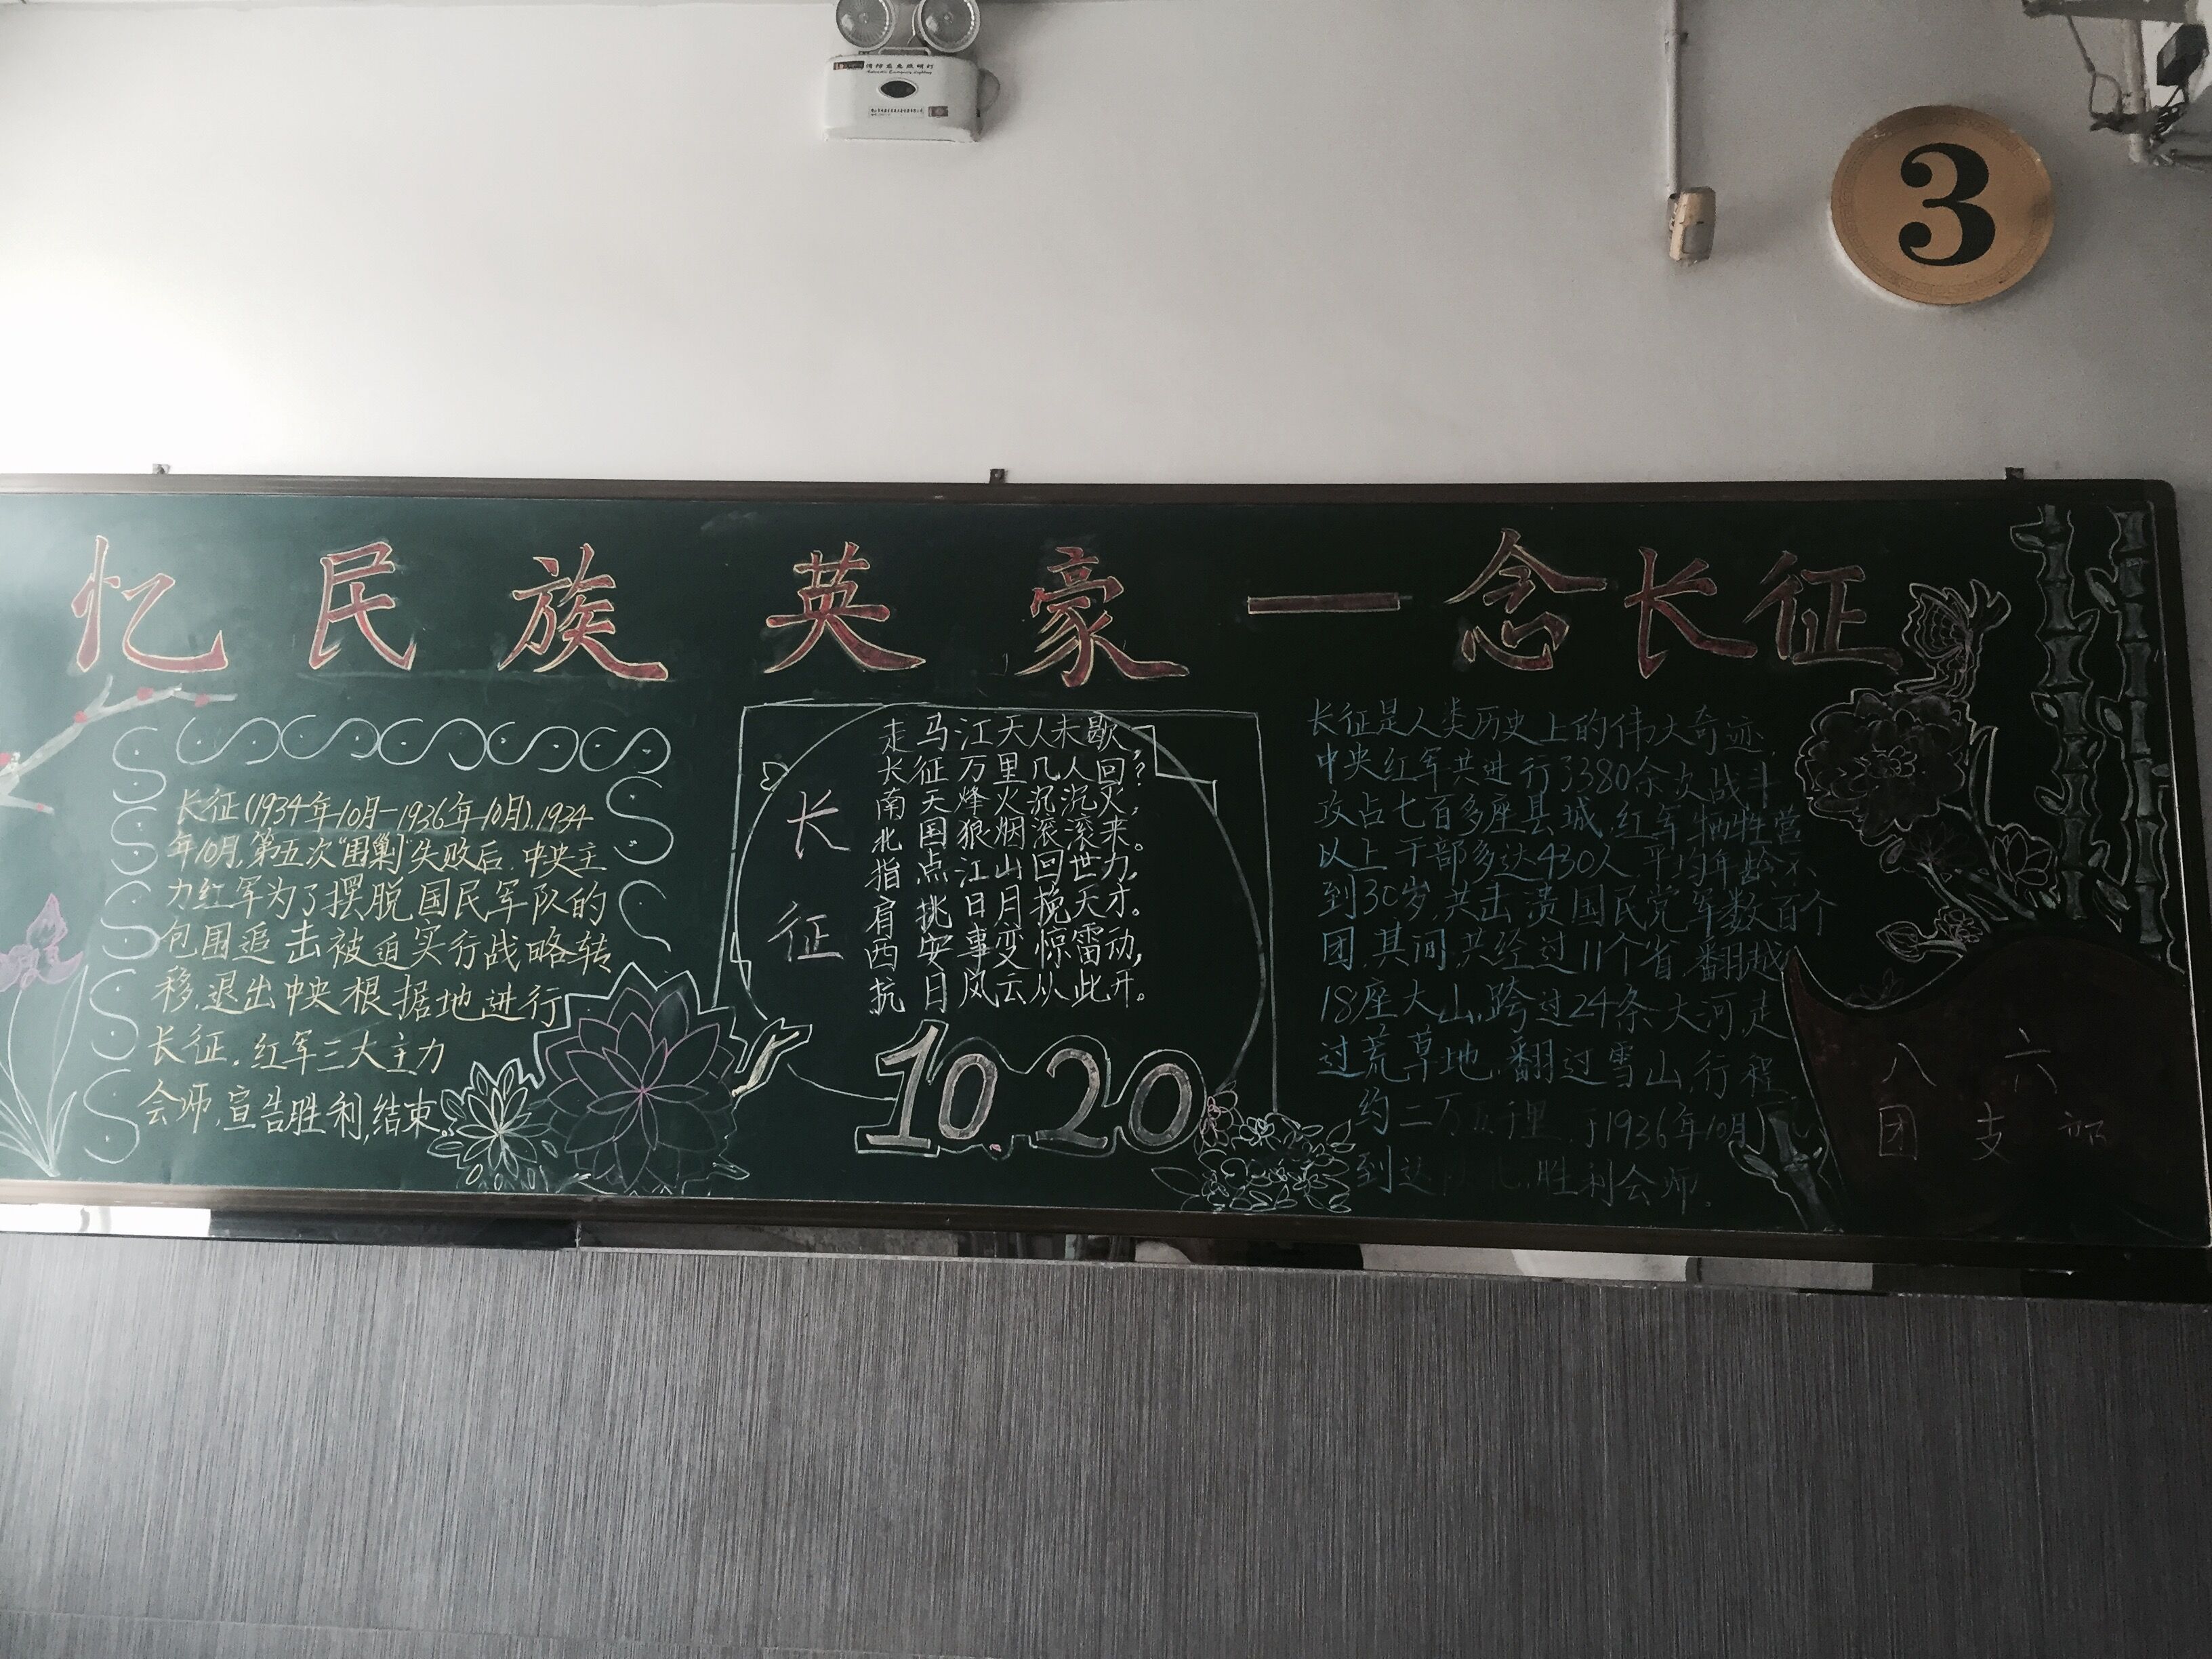 消防应急照明灯
3
忆民族英豪一念长征
长征(1934年10月-1936年10月),1934
年10月,第五次"围剿"失败后,中央主
力红军为了摆脱国民军队的
包围追击被迫实行战略转
移,退出中央根据地进行
长征,红军三大主力
会师,宣告胜利,结束。
长征
走马江天人未歇,
长征万里几人回?
南天烽火沉沉灭,
北国狼烟滚滚来。
指点江山回世力,
肩挑日月挽天才。
西安事变惊雷动,
抗日风云从此开。
10.20
长征是人类历史上的伟大奇迹,
中央红军共进行了380余次战斗
攻占七百多座县城,红军牺牲营
以上干部多达430人,平均年龄不
到30岁,共击溃国民党军数百个
团,其间,共经过11个省,翻越
18座大山,跨过24条大河,走
过荒草地,翻过雪山,行程
约二万五千里,于1936年10月
到达陕北,胜利会师。
八六
团支部